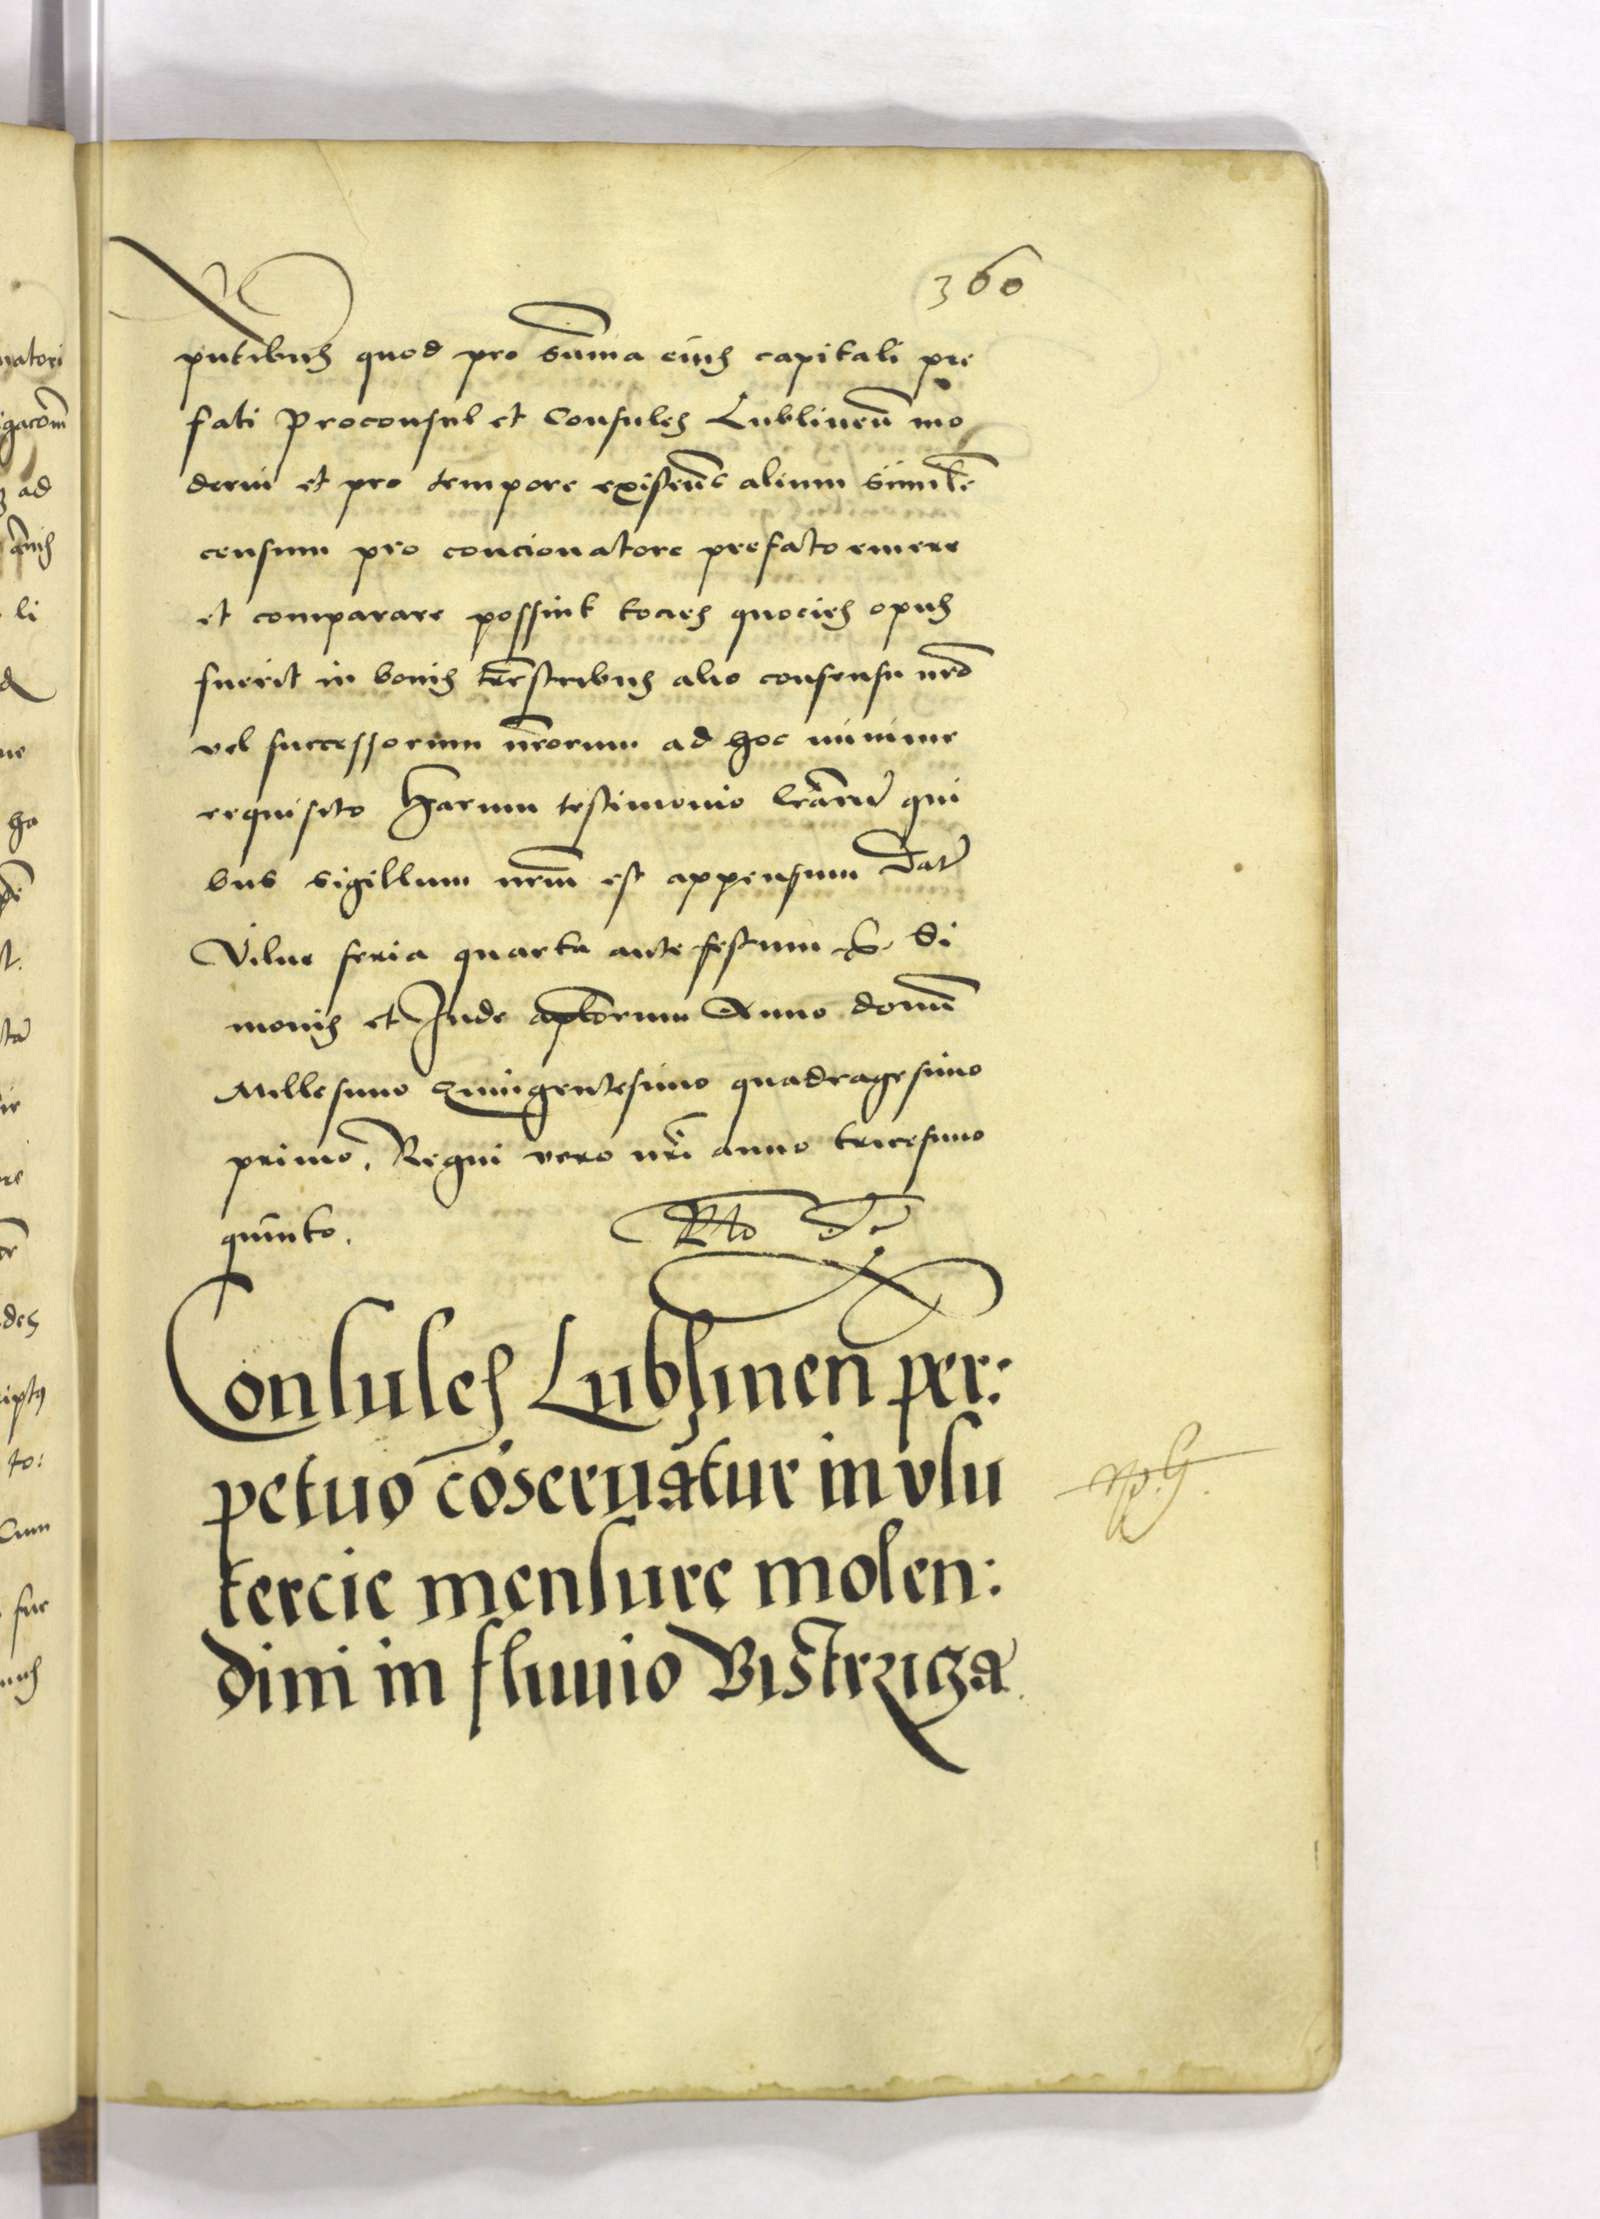 360
pntibus quod pro suma eius capitali pre
fati Proconsul et Consules Lublinen mo
derni et pro tempore existenc alium simile
censum pro concionatore prefato emere
et comparare possint tocies quocies opus
fuerit in bonis trestribus alio consensu nro
vel successorum nrorum ad hoc minime
requisito Harum testimonio lrarum qui
bus sigillum nrum est appensum Dat
Vilne feria quarta ante festum S. Si
monis et Jude aplorum Anno domi
Millesimo Quingentesimo quadragesimo
primo. Regni vero nri anno tricesimo
quinto.
Consules Lublinen per:
petuo coservatur in vsu
tercie mensure molen:
dini in fluuio Bistrzicza